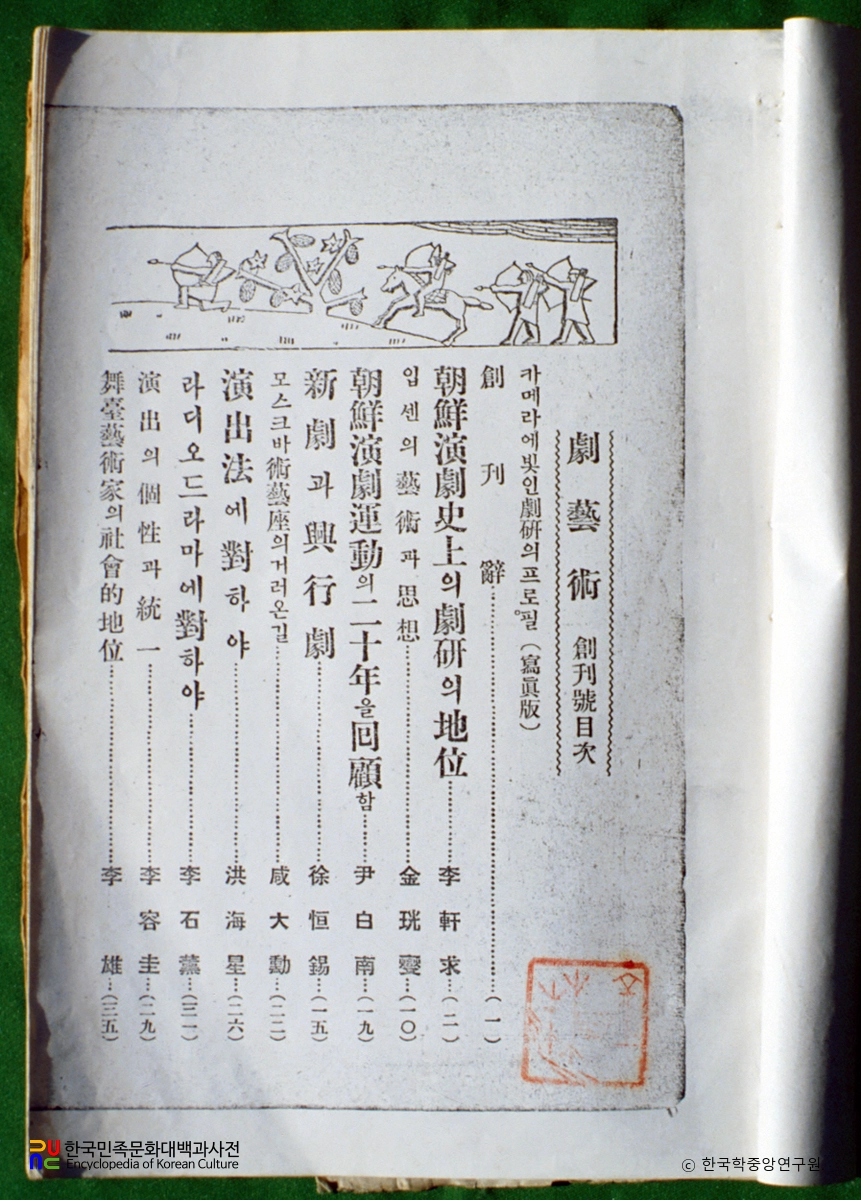 劇藝術 創刊號目次
카메라에빛인劇硏의프로필(寫眞版)
創刊辭(一)
朝鮮演劇史上의劇硏의地位 李軒求(二)
입센의藝術과思想 金珖燮(一〇)
朝鮮演劇運動의二十年을回顧함 尹白南(一九)
新劇과興行劇 徐恒錫(一五)
모스크바術藝座의거러온길 咸大勳(二二)
演出法에對하야 洪海星(二六)
라디오드라마에對하야 李石薰(三一)
演出의個性과統一 李容圭(二九)
舞臺藝術家의社會的地位 李雄(三五)
한국민족문화대백과사전
Encyclopedia of Korean Culture
ⓒ 한국학중앙연구원